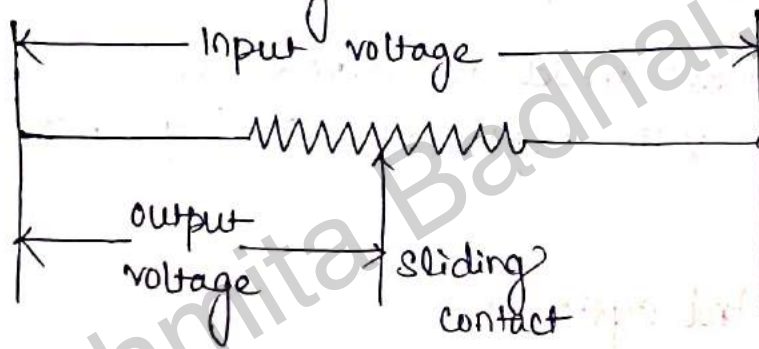 Input voltage
output
voltage
sliding
contact
hmita Badhai